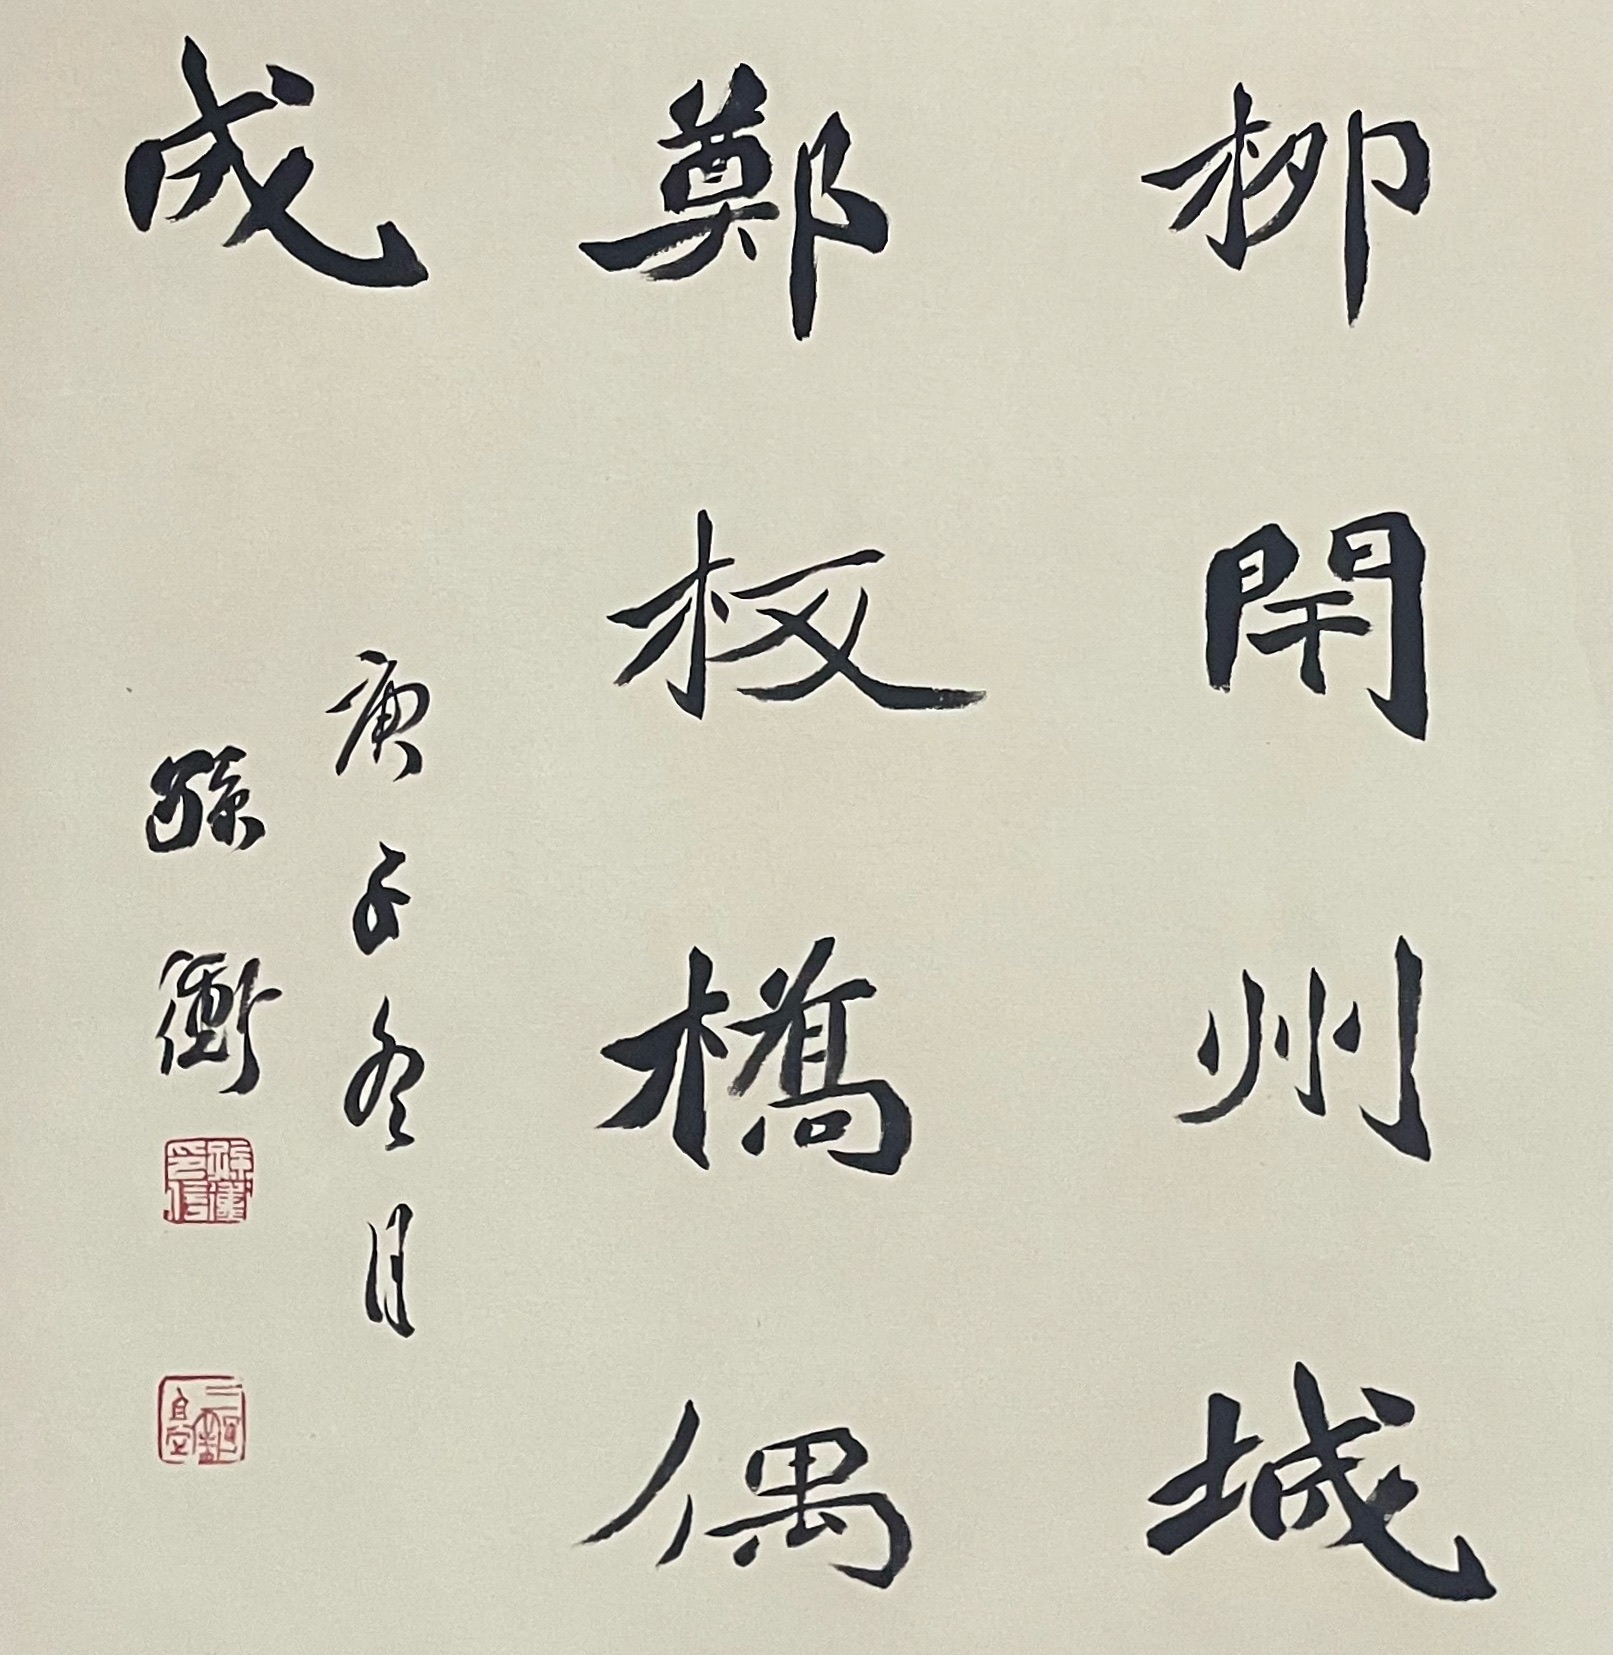 柳閑州城
鄭板橋偶
成
庚子冬月
孫衛